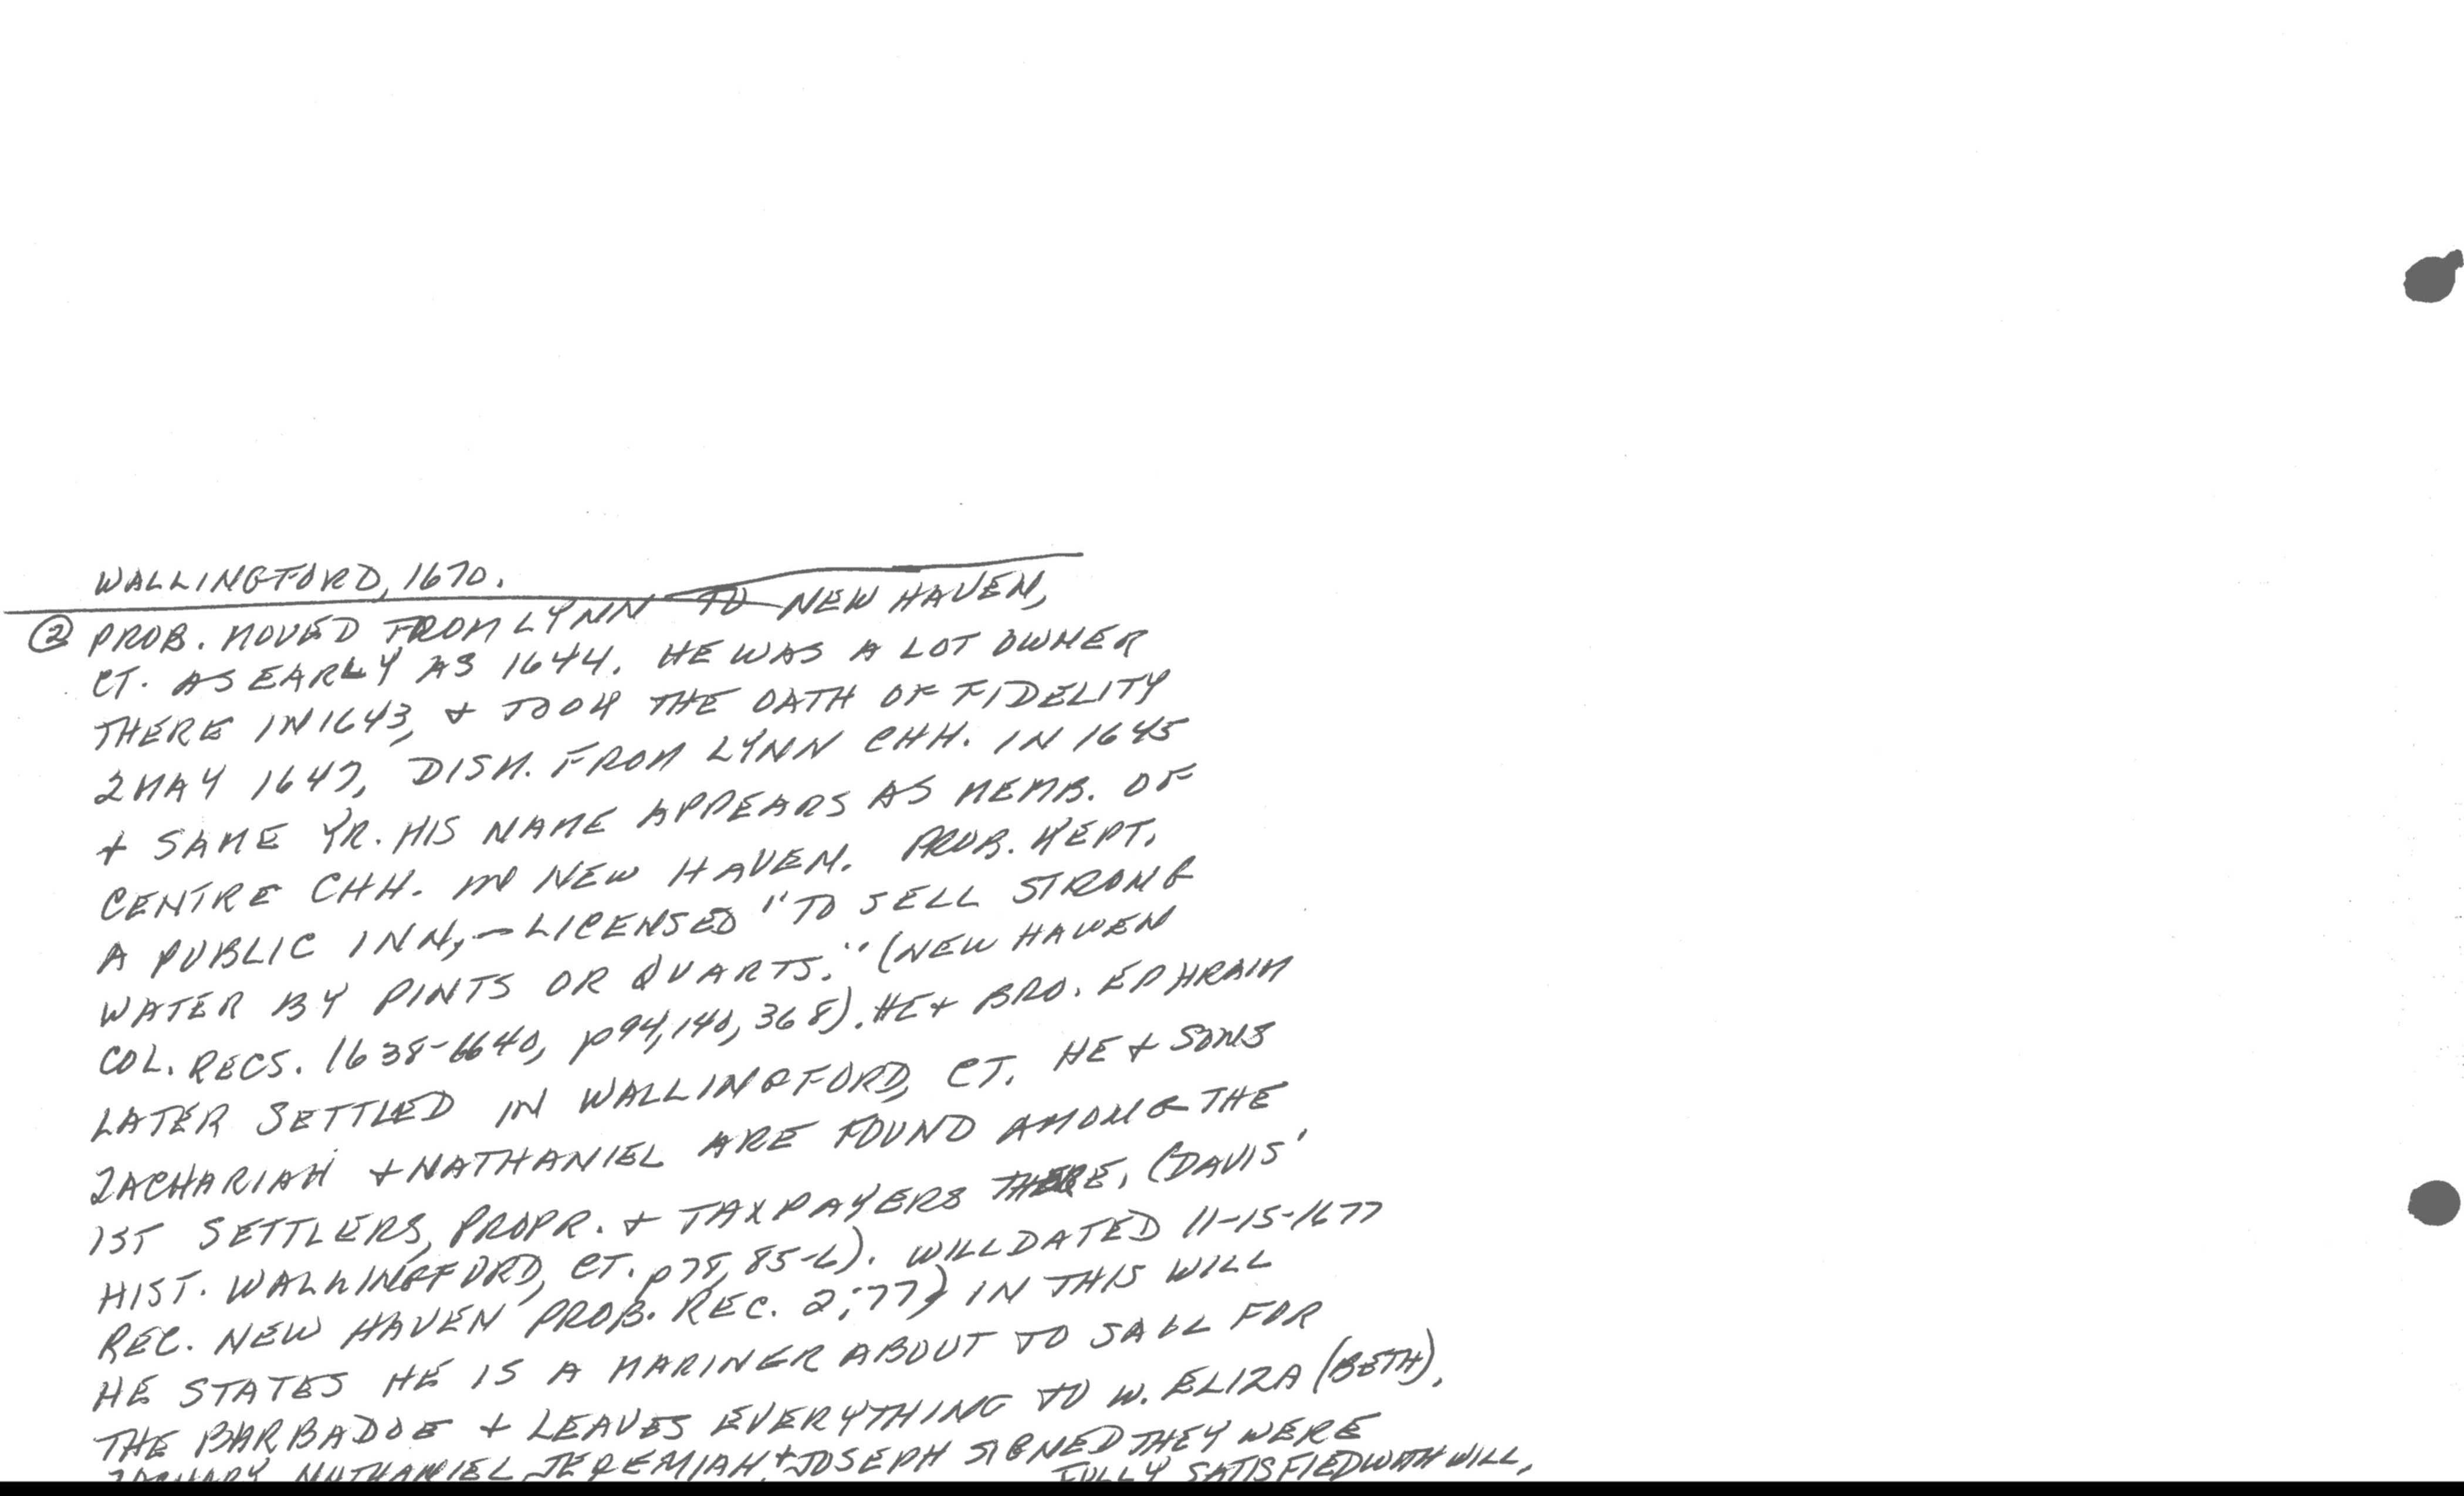 WALLINGFORD, 1670.
② PROB. MOVED FROM LYNN TO NEW HAVEN,
CT. AS EARLY AS 1644. HE WAS A LOT OWNER
THERE IN 1643, + TOOK THE OATH OF FIDELITY
2 MAY 1647, DISM. FROM LYNN CHH. IN 1645
+ SAME YR. HIS NAME APPEARS AS MEMB. OF
CENTRE CHH. IN NEW HAVEN. PROB. KEPT.
A PUBLIC INN, - LICENSED "TO SELL STRONG
WATER BY PINTS OR QUARTS." (NEW HAVEN
COL. RECS. 1638-1640, p94, 140, 368). HE + BRO. EPHRAIM
LATER SETTLED IN WALLINGFORD, CT. HE + SONS
ZACHARIAH + NATHANIEL ARE FOUND AMONG THE
1ST SETTLERS, PROPR. + TAXPAYERS THERE, (DAVIS'
HIST. WALLINGFORD, CT. p78, 85-6). WILL DATED 11-15-1677
REC. NEW HAVEN PROB. REC. 2:77) IN THIS WILL
HE STATES HE IS A MARINER ABOUT TO SAIL FOR
THE BARBADOE + LEAVES EVERYTHING TO W. ELIZA (BETH).
ZACHARY NATHANIEL, JEREMIAH, + JOSEPH SIGNED THEY WERE
FULLY SATISFIED WITH WILL,